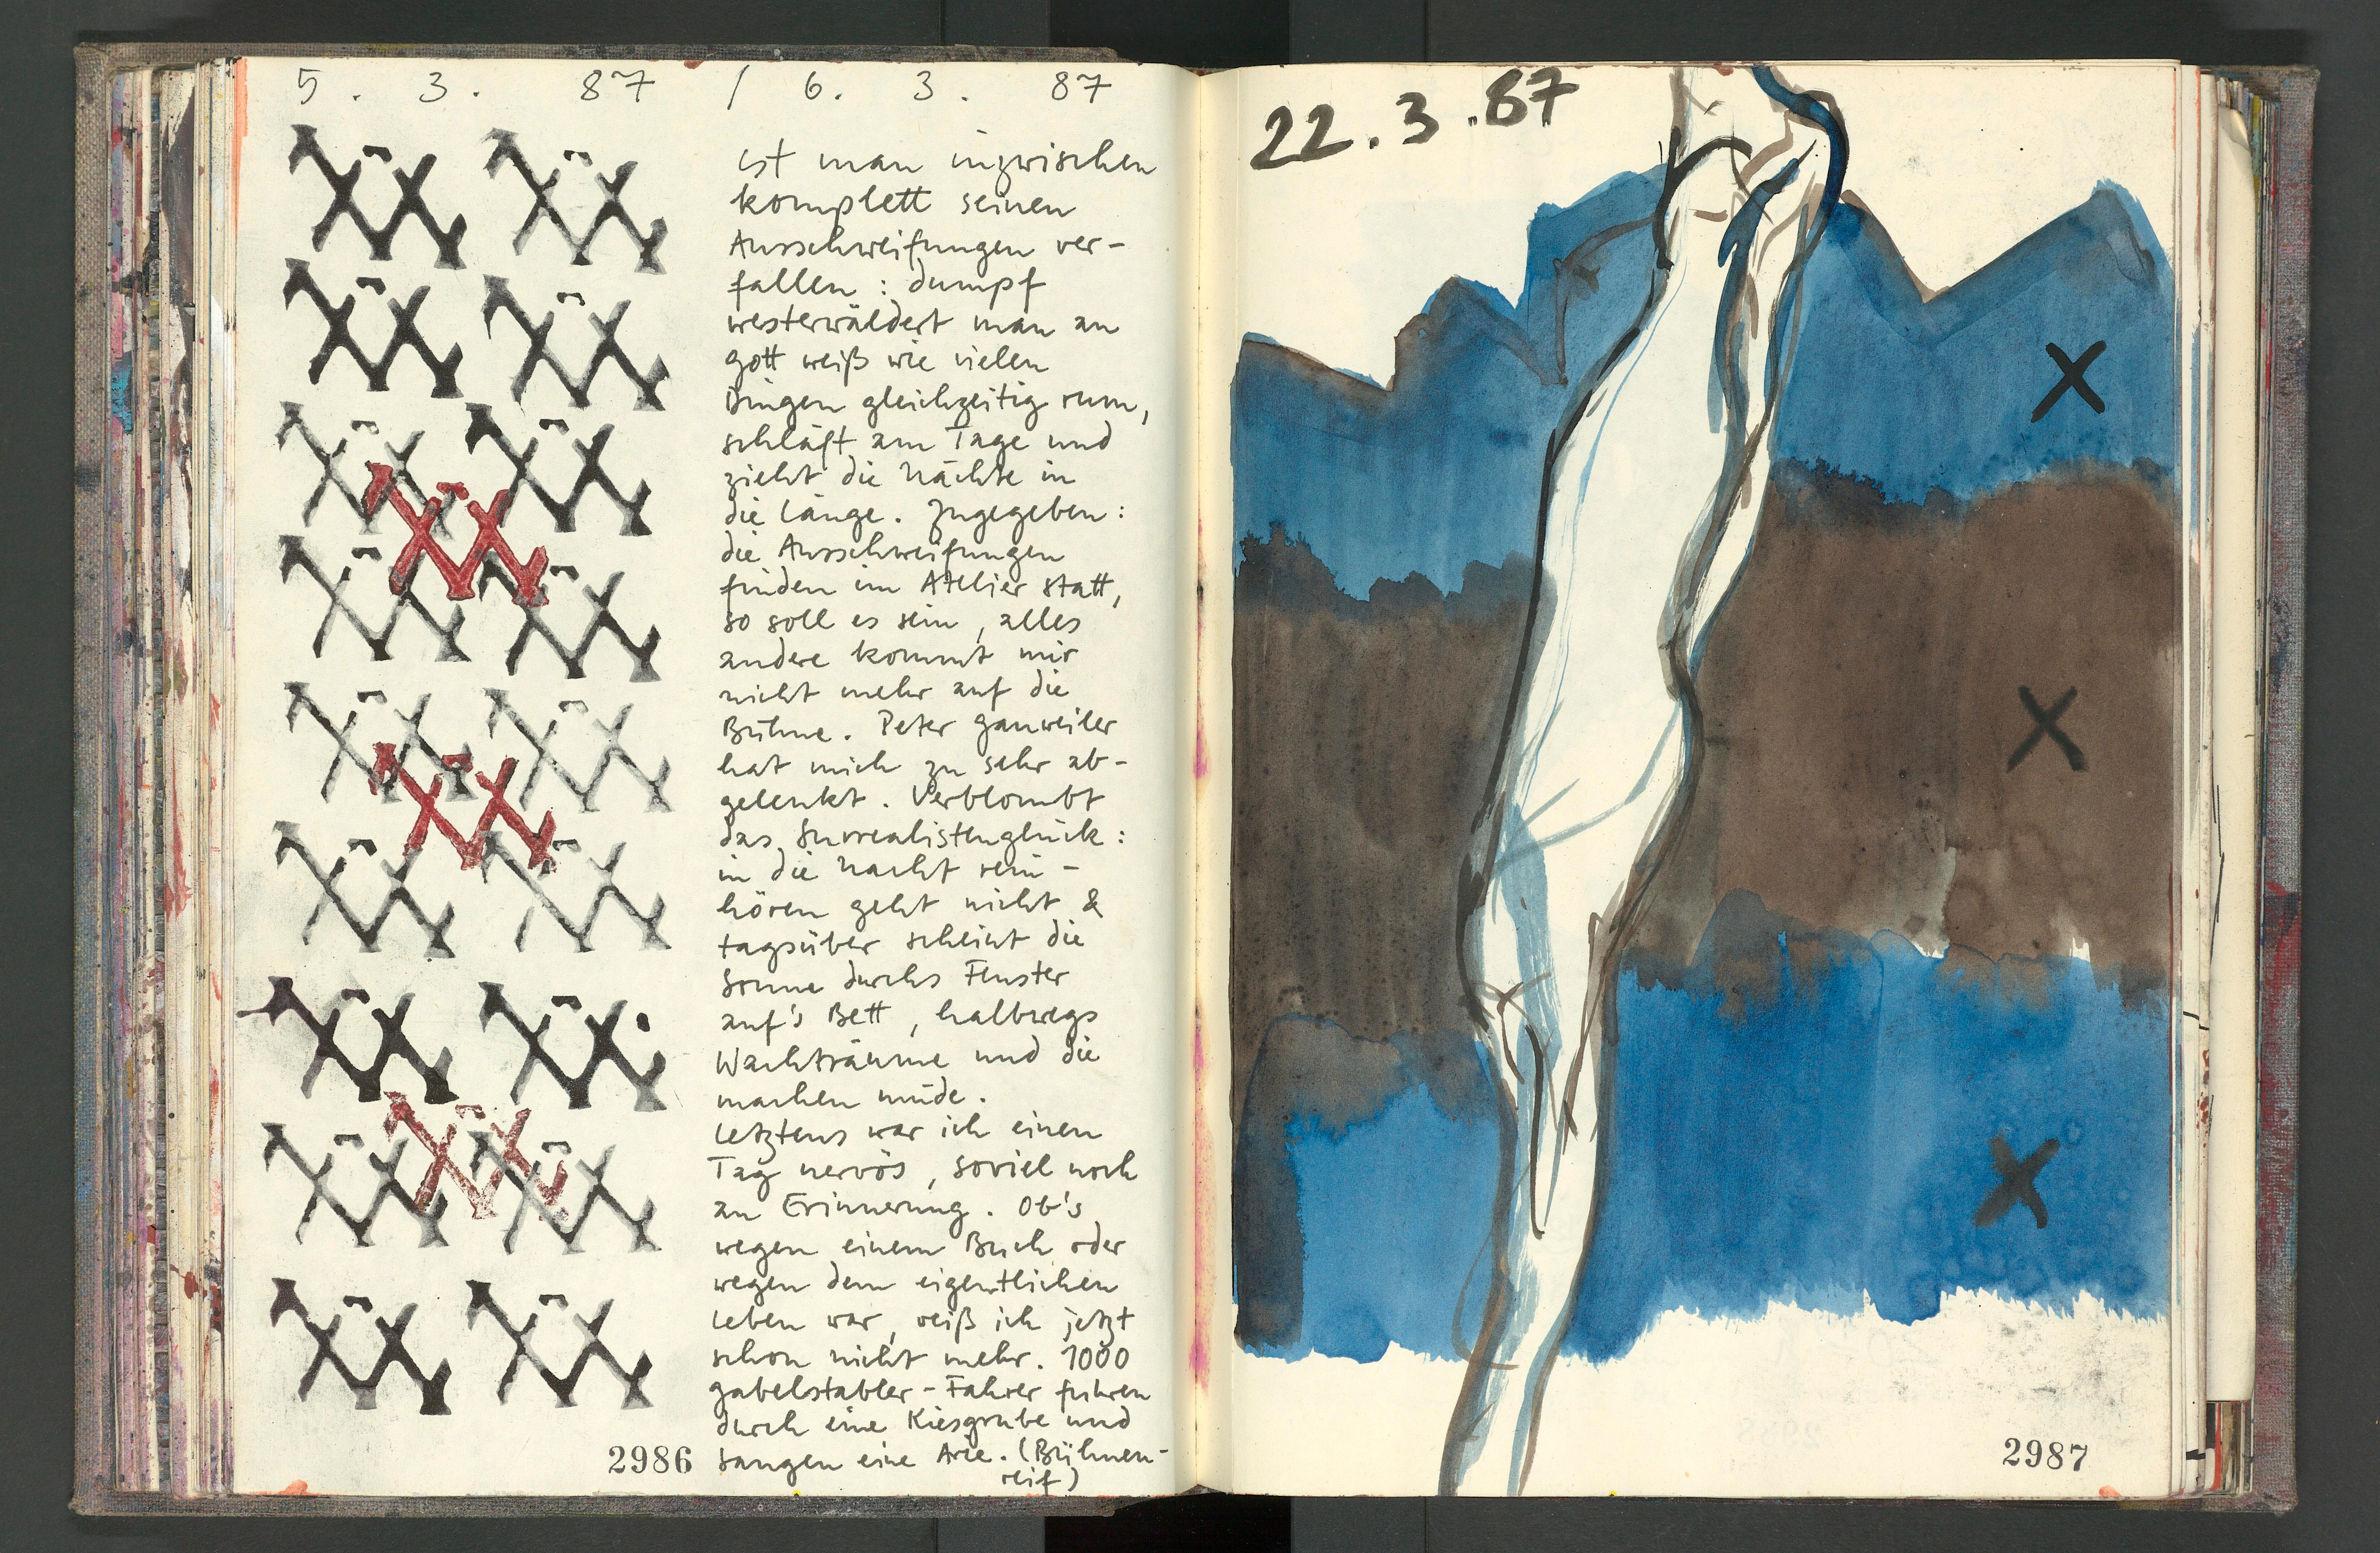 5. 3. 87 / 6. 3. 87
ist man inzwischen
komplett seinen
Ausschweifungen ver-
fallen : dumpf
westerwäldert man an
gott weiß wie vielen
Dingen gleichzeitig rum,
schläft am Tage und
zieht die Nächte in
die Länge. Zugegeben:
die Ausschweifungen
finden im Atelier statt,
so soll es sein, alles
andere kommt mir
nicht mehr auf die
Bühne. Peter Gauweiler
hat mich zu sehr ab-
gelenkt. Verblombt
das Surrealistenglück:
in die Nacht rein-
hören geht nicht &
tagsüber scheint die
Sonne durchs Fenster
auf's Bett, halbwegs
Wachträume und die
machen müde.
Letztens war ich einen
Tag nervös, soviel noch
an Erinnerung. Ob's
wegen einem Buch oder
wegen dem eigentlichen
Leben war, weiß ich jetzt
schon nicht mehr. 1000
gabelstabler-Fahrer fuhren
durch eine Kiesgrube und
sangen eine Arie. (Bühnen-
reif)
2986
22.3.87
X
X
X
2987